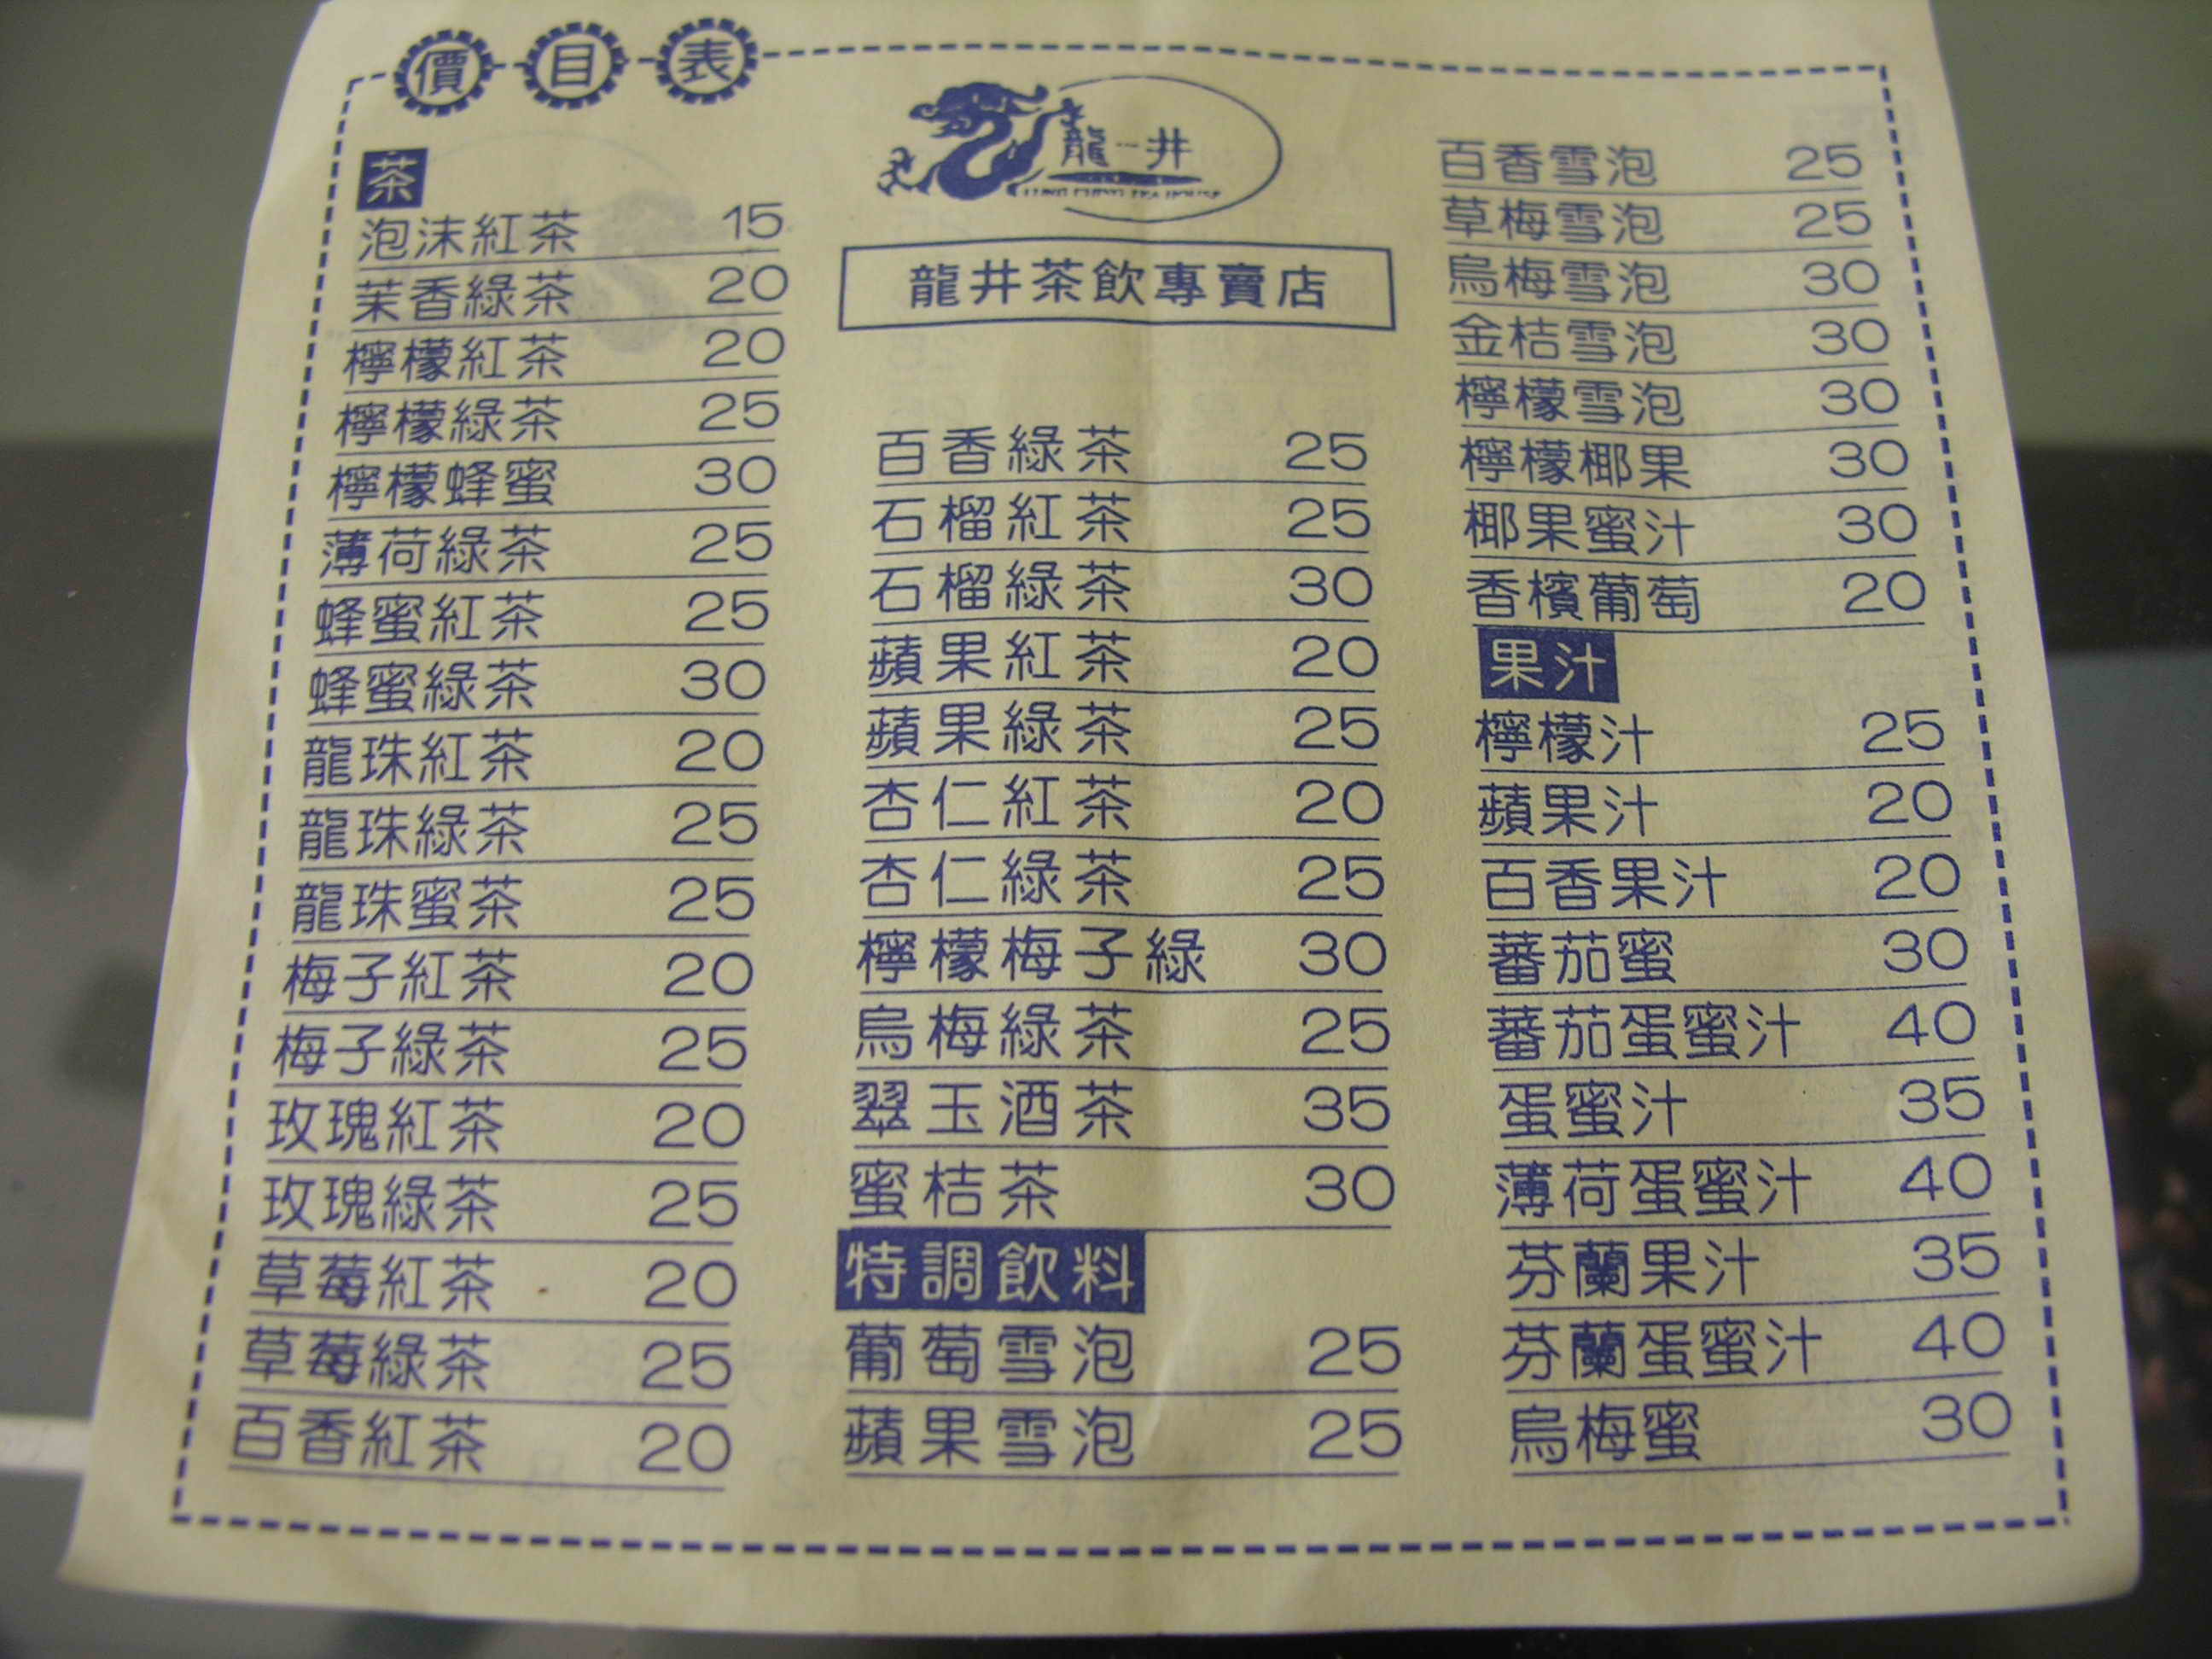 價目表
龍井
LUNG CHING TEA HOUSE
龍井茶飲專賣店
茶
泡沫紅茶 15
茉香綠茶 20
檸檬紅茶 20
檸檬綠茶 25
檸檬蜂蜜 30
薄荷綠茶 25
蜂蜜紅茶 25
蜂蜜綠茶 30
龍珠紅茶 20
龍珠綠茶 25
龍珠蜜茶 25
梅子紅茶 20
梅子綠茶 25
玫瑰紅茶 20
玫瑰綠茶 25
草莓紅茶 20
草莓綠茶 25
百香紅茶 20
百香綠茶 25
石榴紅茶 25
石榴綠茶 30
蘋果紅茶 20
蘋果綠茶 25
杏仁紅茶 20
杏仁綠茶 25
檸檬梅子綠 30
烏梅綠茶 25
翠玉酒茶 35
蜜桔茶 30
特調飲料
葡萄雪泡 25
蘋果雪泡 25
百香雪泡 25
草梅雪泡 25
烏梅雪泡 30
金桔雪泡 30
檸檬雪泡 30
檸檬椰果 30
椰果蜜汁 30
香檳葡萄 20
果汁
檸檬汁 25
蘋果汁 20
百香果汁 20
蕃茄蜜 30
蕃茄蛋蜜汁 40
蛋蜜汁 35
薄荷蛋蜜汁 40
芬蘭果汁 35
芬蘭蛋蜜汁 40
烏梅蜜 30